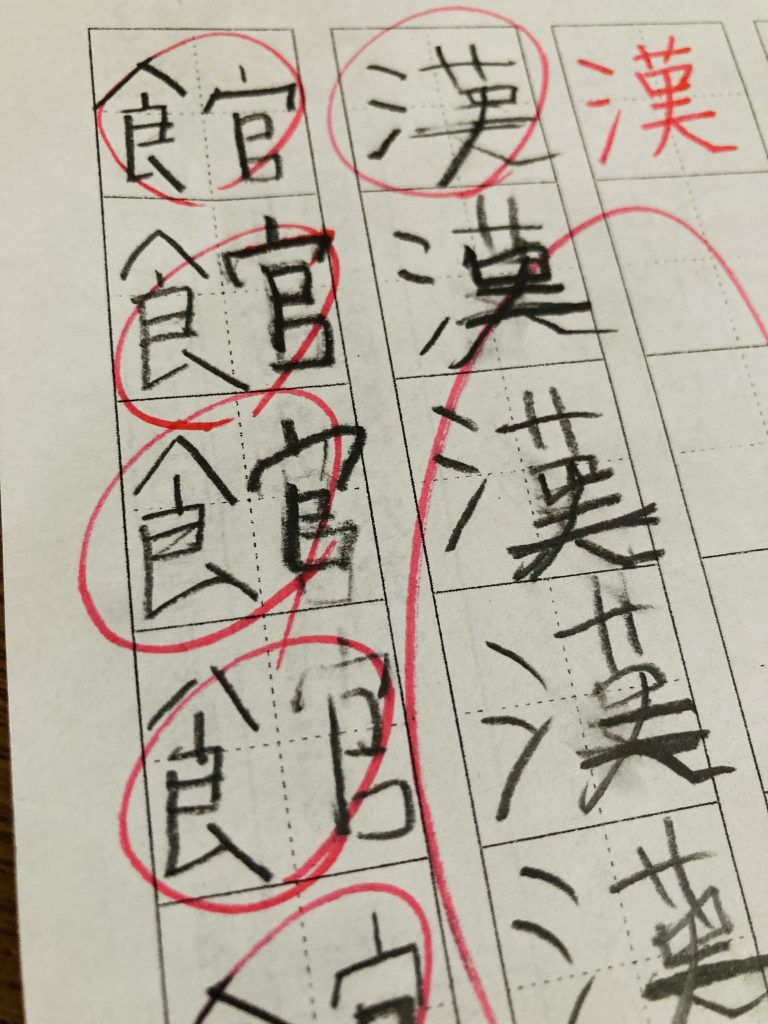 漢
漢漢漢漢漢
館館館館館